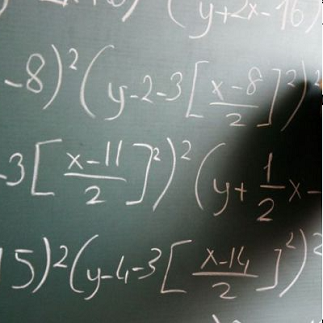 (y+2x-16)
-8)² (y-2-3[x-8/2]²)²
-3[x-11/2]²)² (y+1/2x-
15)² (y-4-3[x-14/2]²)²